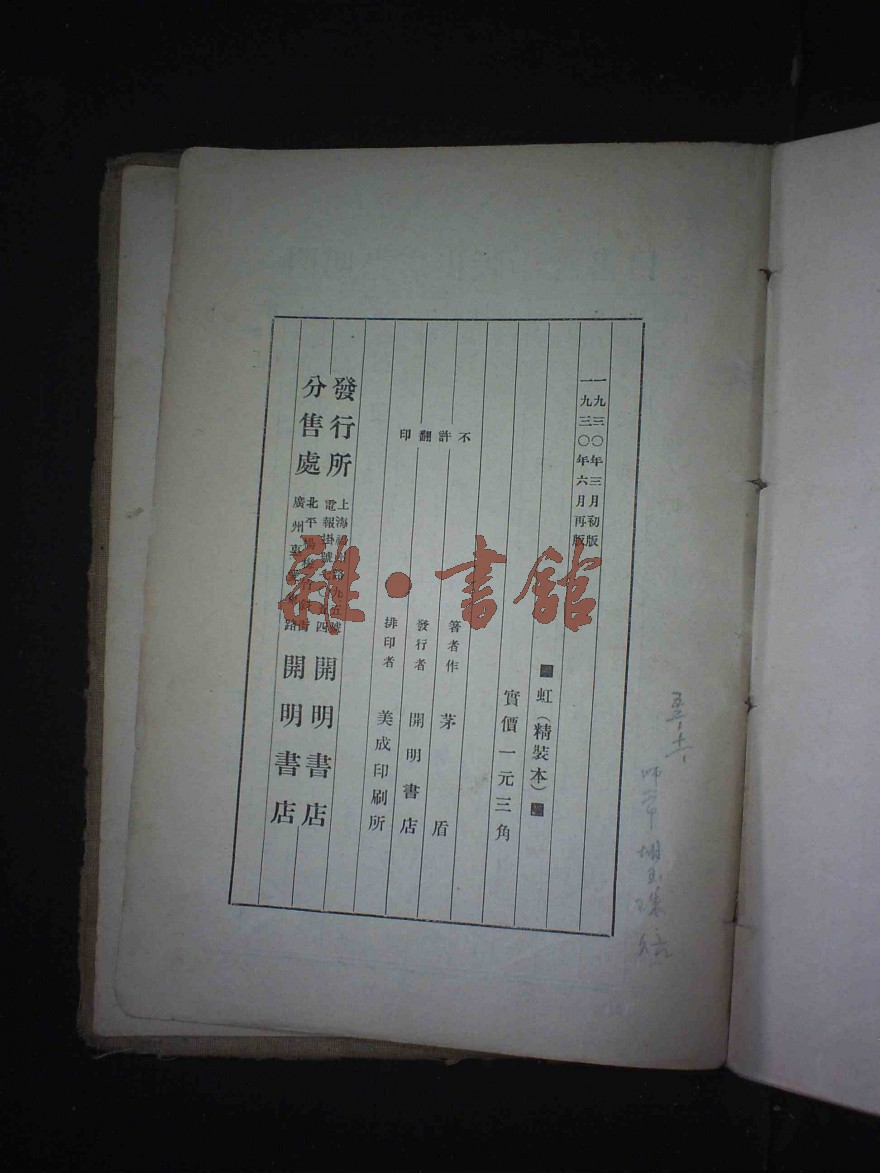 一九三〇年三月初版
一九三〇年六月再版
虹（精裝本）
實價一元三角
不許翻印
著者作 茅盾
發行者 開明書店
排印者 美成印刷所
發行所
上海
電報掛號
開明書店
分售處
北平
廣州
路
開明書店
雜·書館